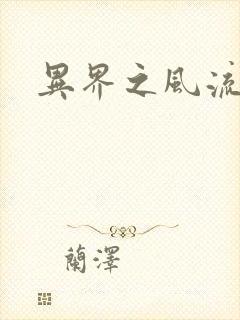 異界之風流
蘭澤